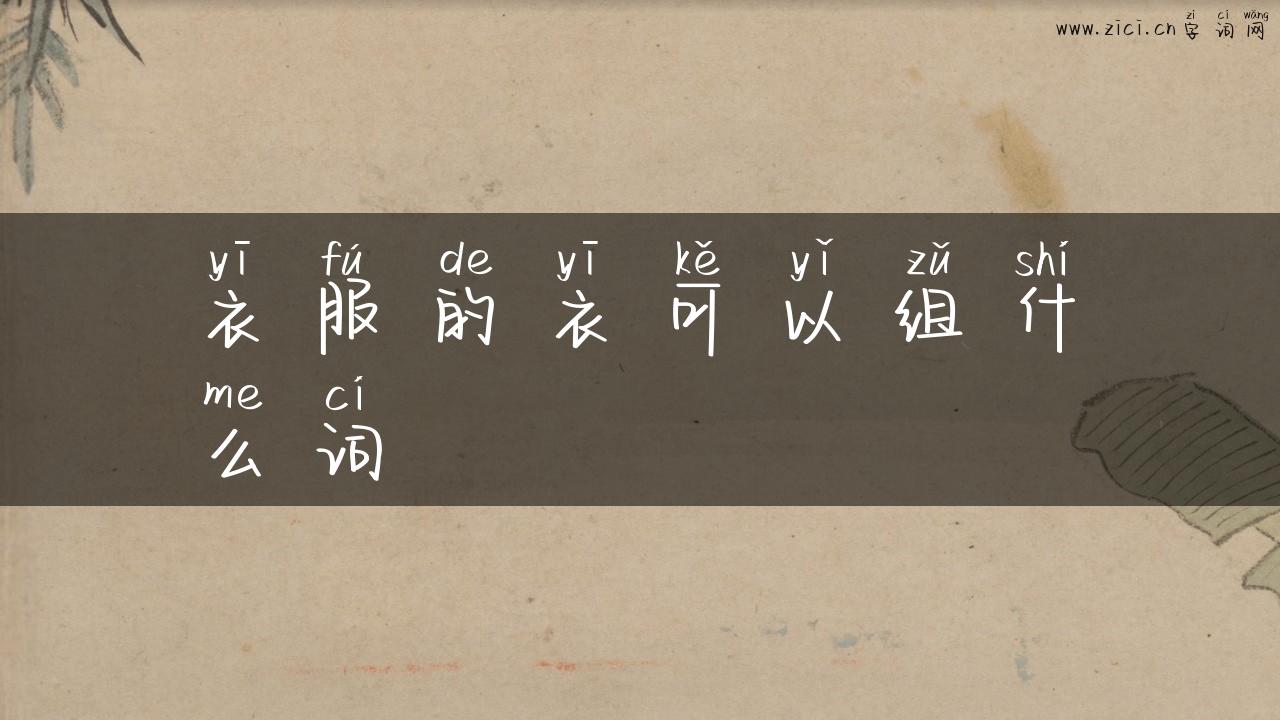 zì cí wǎng
www.zici.cn 字词网
yī fú de yī kě yǐ zǔ shí
衣服的衣可以组什
me cí
么词